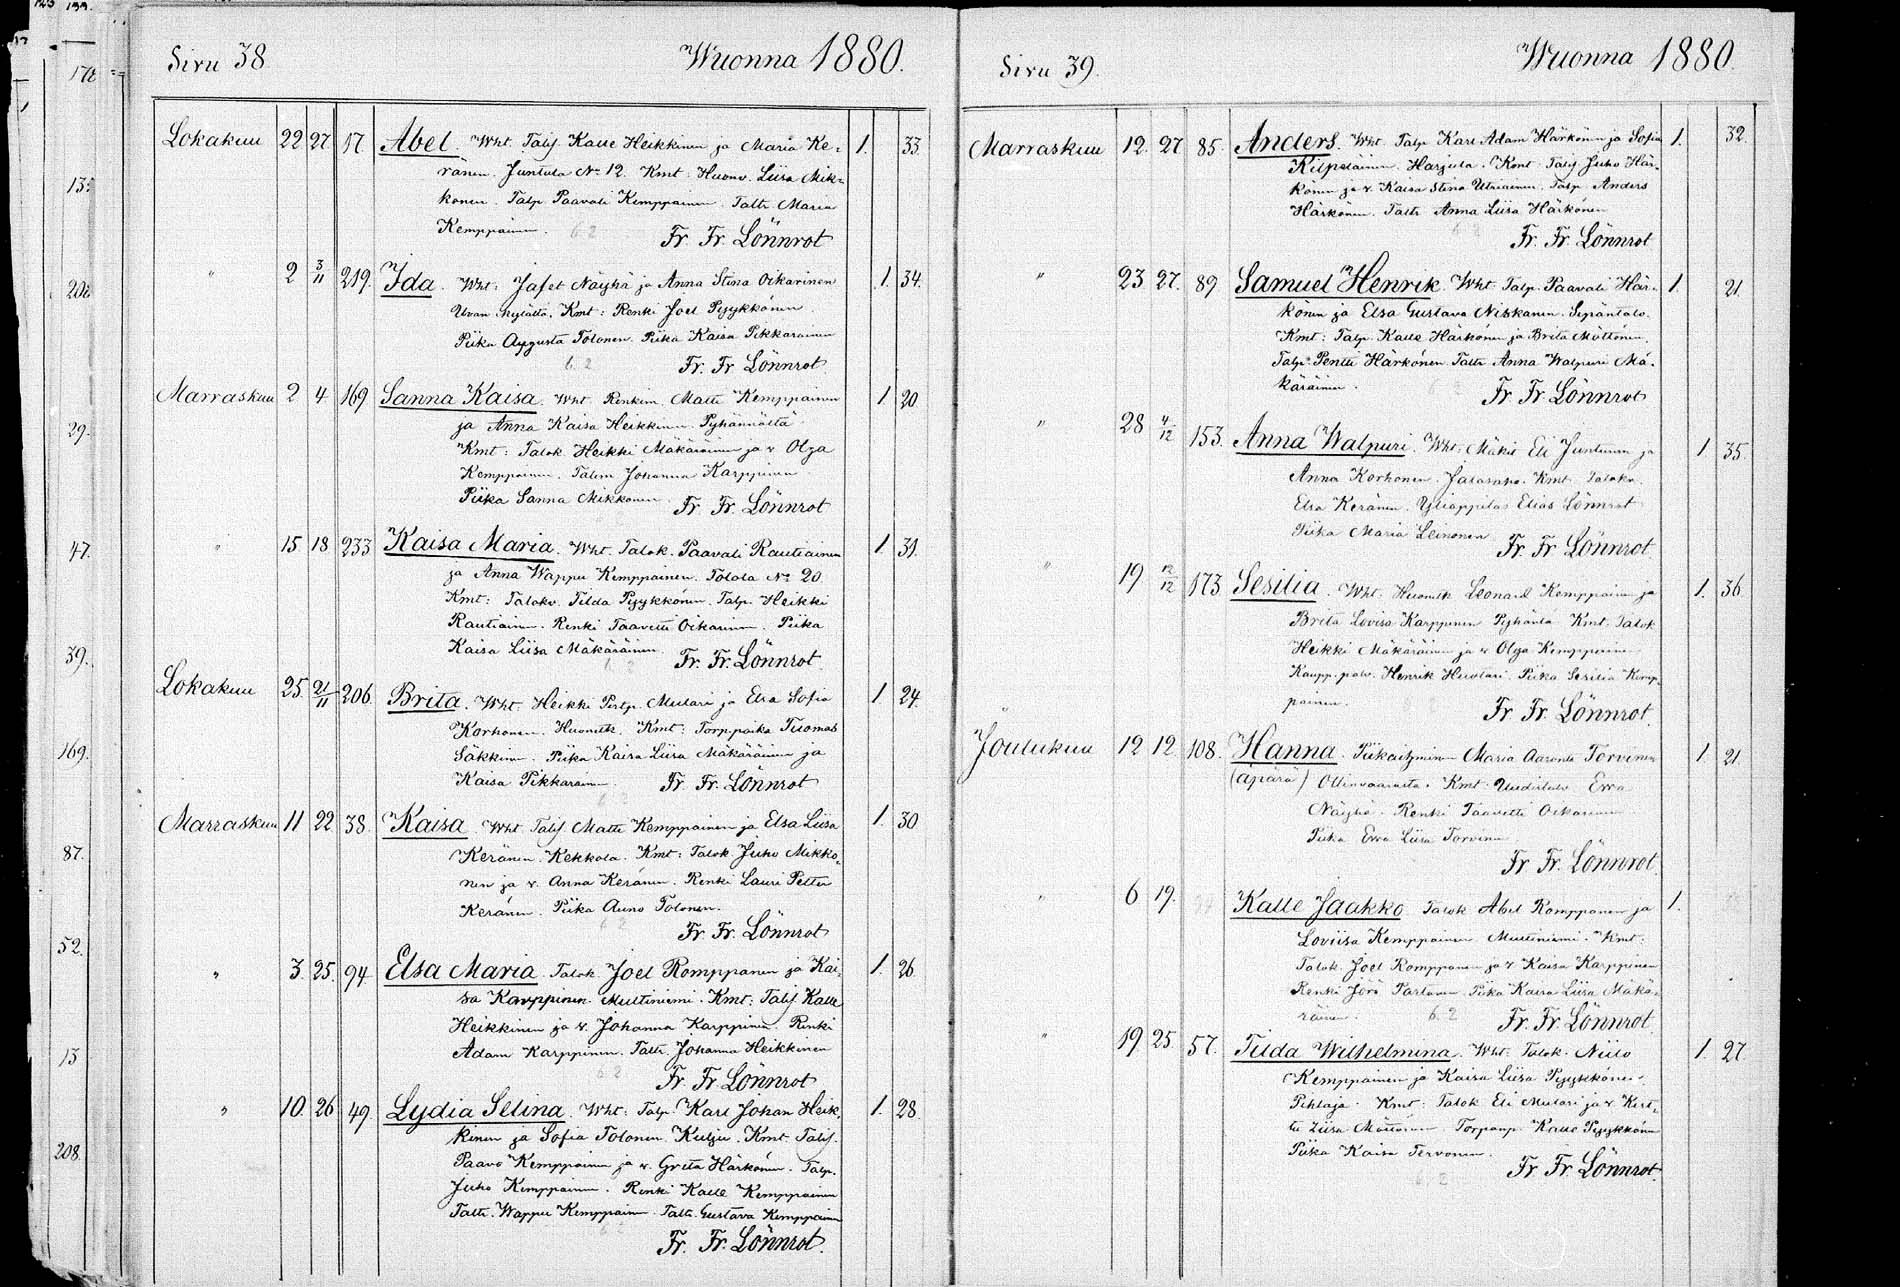 Sivu 38. Wuonna 1880.
Lokakuu 22 27 17 Abel. Wht. Talij Kalle Heikkinen ja Maria Ke- 1. 33.
ränen. Juntula No 12. Kmt: Huonv. Liisa Mik-
konen. Talp. Paavali Kemppainen. Taltr Maria
Kemppainen.
Fr. Fr. Lönnrot
" 2 3/11 219. Ida. Wht: Jafet Näyhä ja Anna Stina Oikarinen 1. 34.
Ulvan kylältä. Kmt: Renki Joel Pyykkönen
Piika Augusta Tolonen. Piika Kaisa Pikkarainen
Fr. Fr. Lönnrot
Marraskuu 2 4 169 Sanna Kaisa. Wht. Renkim. Matti Kemppainen 1 20
ja Anna Kaisa Heikkinen Pyhännältä
Kmt: Talok. Heikki Mäkäräinen ja v. Olga
Kemppainen. Talim Johanna Karppinen
Piika Sanna Mikkonen.
Fr. Fr. Lönnrot
" 15 18 233 Kaisa Maria. Wht. Talok. Paavali Rautiainen 1. 31.
ja Anna Wappu Kemppainen. Tolola No 20.
Kmt: Talokv. Tilda Pyykkönen. Talp. Heikki
Rautiainen. Renki Taavetti Oikarinen. Piika
Kaisa Liisa Mäkäräinen.
Fr. Fr. Lönnrot.
Lokakuu 25. 21/11 206. Brita. Wht. Heikki Pistp. Mulari ja Elsa Sofia 1. 24.
Korhonen. Huonulk. Kmt: Torppoika Tuomas
Säkkinen. Piika Kaisa Liisa Mäkäräinen ja
Kaisa Pikkarainen
Fr. Fr. Lönnrot
Marraskuu 11 22 38. Kaisa Wht Talij. Matti Kemppainen ja Elsa Liisa 1. 30
Keränen. Kekkola. Kmt: Talok Juho Mikko-
nen ja v. Anna Keränen. Renki Lauri Petter
Keränen. Piika Auno Tolonen.
Fr. Fr. Lönnrot
" 3. 25. 94. Elsa Maria. Talok. Joel Romppanen ja Kai- 1. 26
sa Karppinen. Multiniemi. Kmt: Talij Kalle
Heikkinen ja v. Johanna Karppinen. Renki
Adam Karppinen. Taltr. Johanna Heikkinen
Fr. Fr. Lönnrot
" 10. 26 49. Lydia Selina. Wht: Talp. Karl Johan Heik- 1. 28.
kinen ja Sofia Tolonen. Kulju. Kmt. Talij.
Paavo Kemppainen ja v. Greta Härkönen. Talp.
Juho Kemppainen. Renki Kalle Kemppainen
Taltr. Wappu Kemppainen. Taltr. Gustava Kemppainen
Fr. Fr. Lönnrot.
178
135
208
29.
47.
39.
169.
87.
52.
13
208.
Sivu 39. Wuonna 1880.
Marraskuu 12. 27 85. Anders. Wht. Talp Karl Adam Härkönen ja Sofia 1. 32.
Kilpeläinen. Harjula. Kmt Talij Juho Här-
könen ja v. Kaisa Stina Utriainen. Talp. Anders
Härkönen. Taltr Anna Liisa Härkönen
Fr. Fr. Lönnrot
" 23 27. 89 Samuel Henrik. Wht. Talp. Paavali Här- 1. 21.
könen ja Elsa Gustava Niskanen. Sepäntalo.
Kmt: Talp. Kalle Härkönen ja Brita Möttönen.
Talp. Pentti Härkönen. Taltr Anna Walpuri Mä-
käräinen.
Fr. Fr. Lönnrot
" 28 4/12 153. Anna Walpuri. Wht: Mäkit Eli Juntunen ja 1. 35.
Anna Korhonen. Jalasaho. Kmt. Talokv.
Elsa Keränen. Ylioppilas Elias Lönnrot
Piika Maria Leinonen
Fr. Fr. Lönnrot
" 19 12/12 173 Sesilia. Wht. Huonulk Leonard Kemppainen ja 1. 36.
Brita Lovisa Karppinen Pyhäntä Kmt. Talok
Heikki Mäkäräinen ja v. Olga Kemppainen
Kaupp. palv. Henrik Huotari. Piika Sesilia Kemp-
painen.
Fr. Fr. Lönnrot.
Joulukuu 12 12. 108. Hanna. Piikaitsminen Maria Aarontr Torvinen 1. 21.
(äpärä) Ollinvaarasta. Kmt. Uudistalv Ewa
Näyhä. Renki Taavetti Oikarinen
Piika Ewa Liisa Torvinen
Fr. Fr. Lönnrot.
" 6 19. Kalle Jaakko Talok Abel Romppanen ja 1.
Loviisa Kemppainen Multiniemi. Kmt:
Talok. Joel Romppanen ja v Kaisa Karppinen
Renki Jörö Partanen. Piika Kaisa Liisa Mäkä-
räinen.
Fr. Fr. Lönnrot.
" 19. 25. 57. Tilda Wilhelmina. Wht: Talok. Niilo 1. 27.
Kemppainen ja Kaisa Liisa Pyykkönen.
Pihlaja. Kmt: Talok Eli Mulari ja v. Kert-
tu Liisa Möttönen. Torpanp. Kalle Pyykkönen
Piika Kaisa Tervonen.
Fr. Fr. Lönnrot.